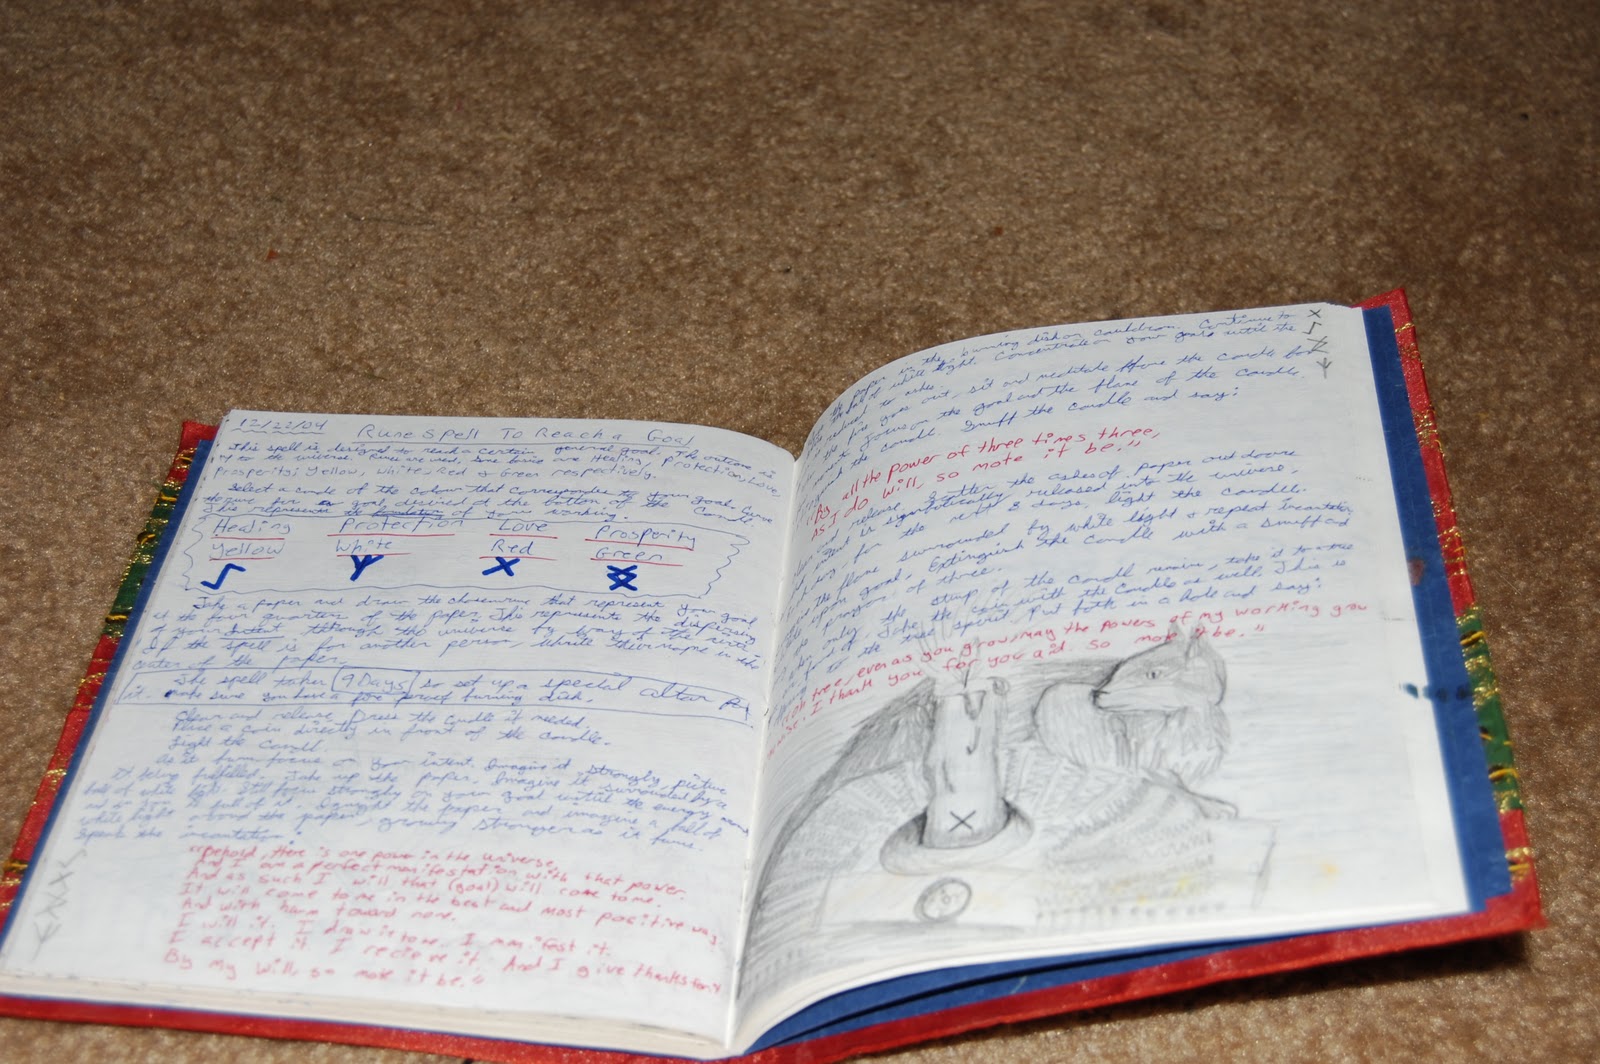 12/22/04 Rune Spell To Reach a Goal
This spell is designed to reach a certain general goal. The outcome is
to the universe. Runes are used, some basic are Healing, Protection, Love,
Prosperity; Yellow, White, Red & Green respectively.
Select a candle of the colour that corresponds to your goal. Carve
rune for goal desired at the bottom of the candle
This represents the of your working.
Healing Protection Love Prosperity
Yellow White Red Green
Take a paper and draw the chosen rune that represent your goal
at the four quarters of the paper. This represents the dispersing
of your intent through the universe by way of the
If the spell is for another person, write their name in the
center of the paper.
The spell takes 9 Days so set up a special altar for
it. make sure you have a fire proof burning dish.
Clear and release. Dress the candle if needed.
Place a coin directly in front of the candle.
Light the candle.
As it burns focus on your intent. Imagine it strongly, picture
it being fulfilled. Take up the paper. Imagine it surrounded by a
ball of white light. Still focus strongly on your goal until the energy
is full of it. Ignight the paper and imagine a ball of
white light around the paper, growing stronger as it burns.
Speak the incantation:
"Behold, there is one power in the universe,
And I am a perfect manifestation with that power.
And as such I will that (goal) will come to me.
It will come to me in the best and most positive way
And with harm toward none.
I will it. I draw it to me. I manifest it.
I accept it I recieve it. And I give thanks for it
By my will, so mote it be."
the paper in the burning dish or cauldron. Continue to
the ball of white light. Concentrate on your goals until the
is reduced to ashes.
the fire goes out, sit and meditate the candle for
focus on the goal and the flame of the candle
the candle. Snuff the candle and say:
"By all the power of three times three,
As I do will, so mote it be."
and release. Scatter the ashes of paper out doors
intent is symbolically released into the universe.
day, for the next 8 days, light the candle.
the flame surrounded by white light & repeat incantation
upon goal. Extinguish the candle with a snuff and
of three.
only the stump of the candle remains, take it to a tree
fond of. Take the coin with the candle as well. This is
to the tree spirit. Put both in a hole and say:
tree, even as you grow, may the powers of my working grow
I thank you for you aid. So mote it be."